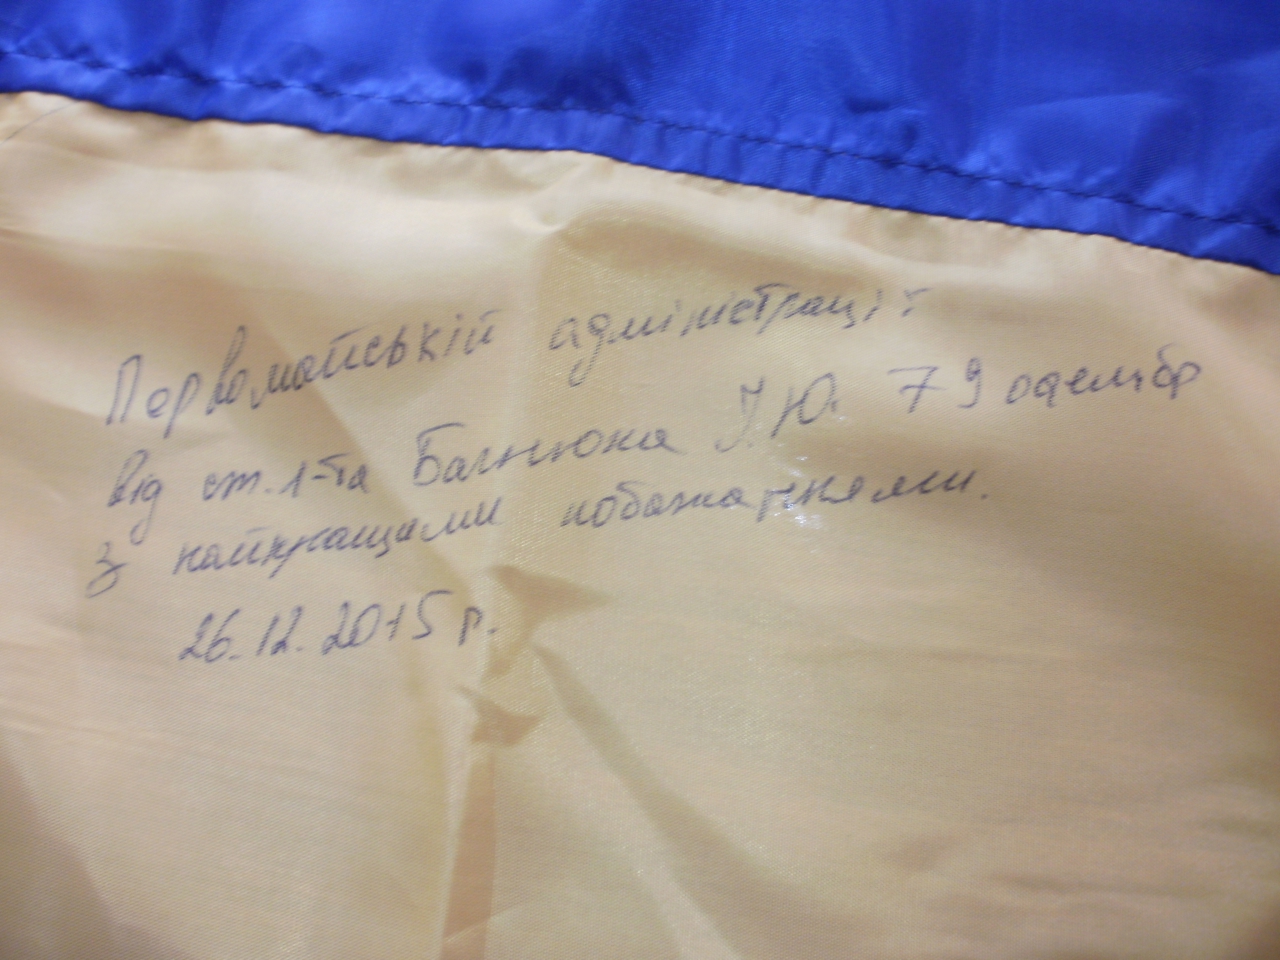 Первомайській адміністрації
від ст. л-та Багнюка І.Ю. 79 оаембр
з найкращами побажаннями.
26.12.2015 р.